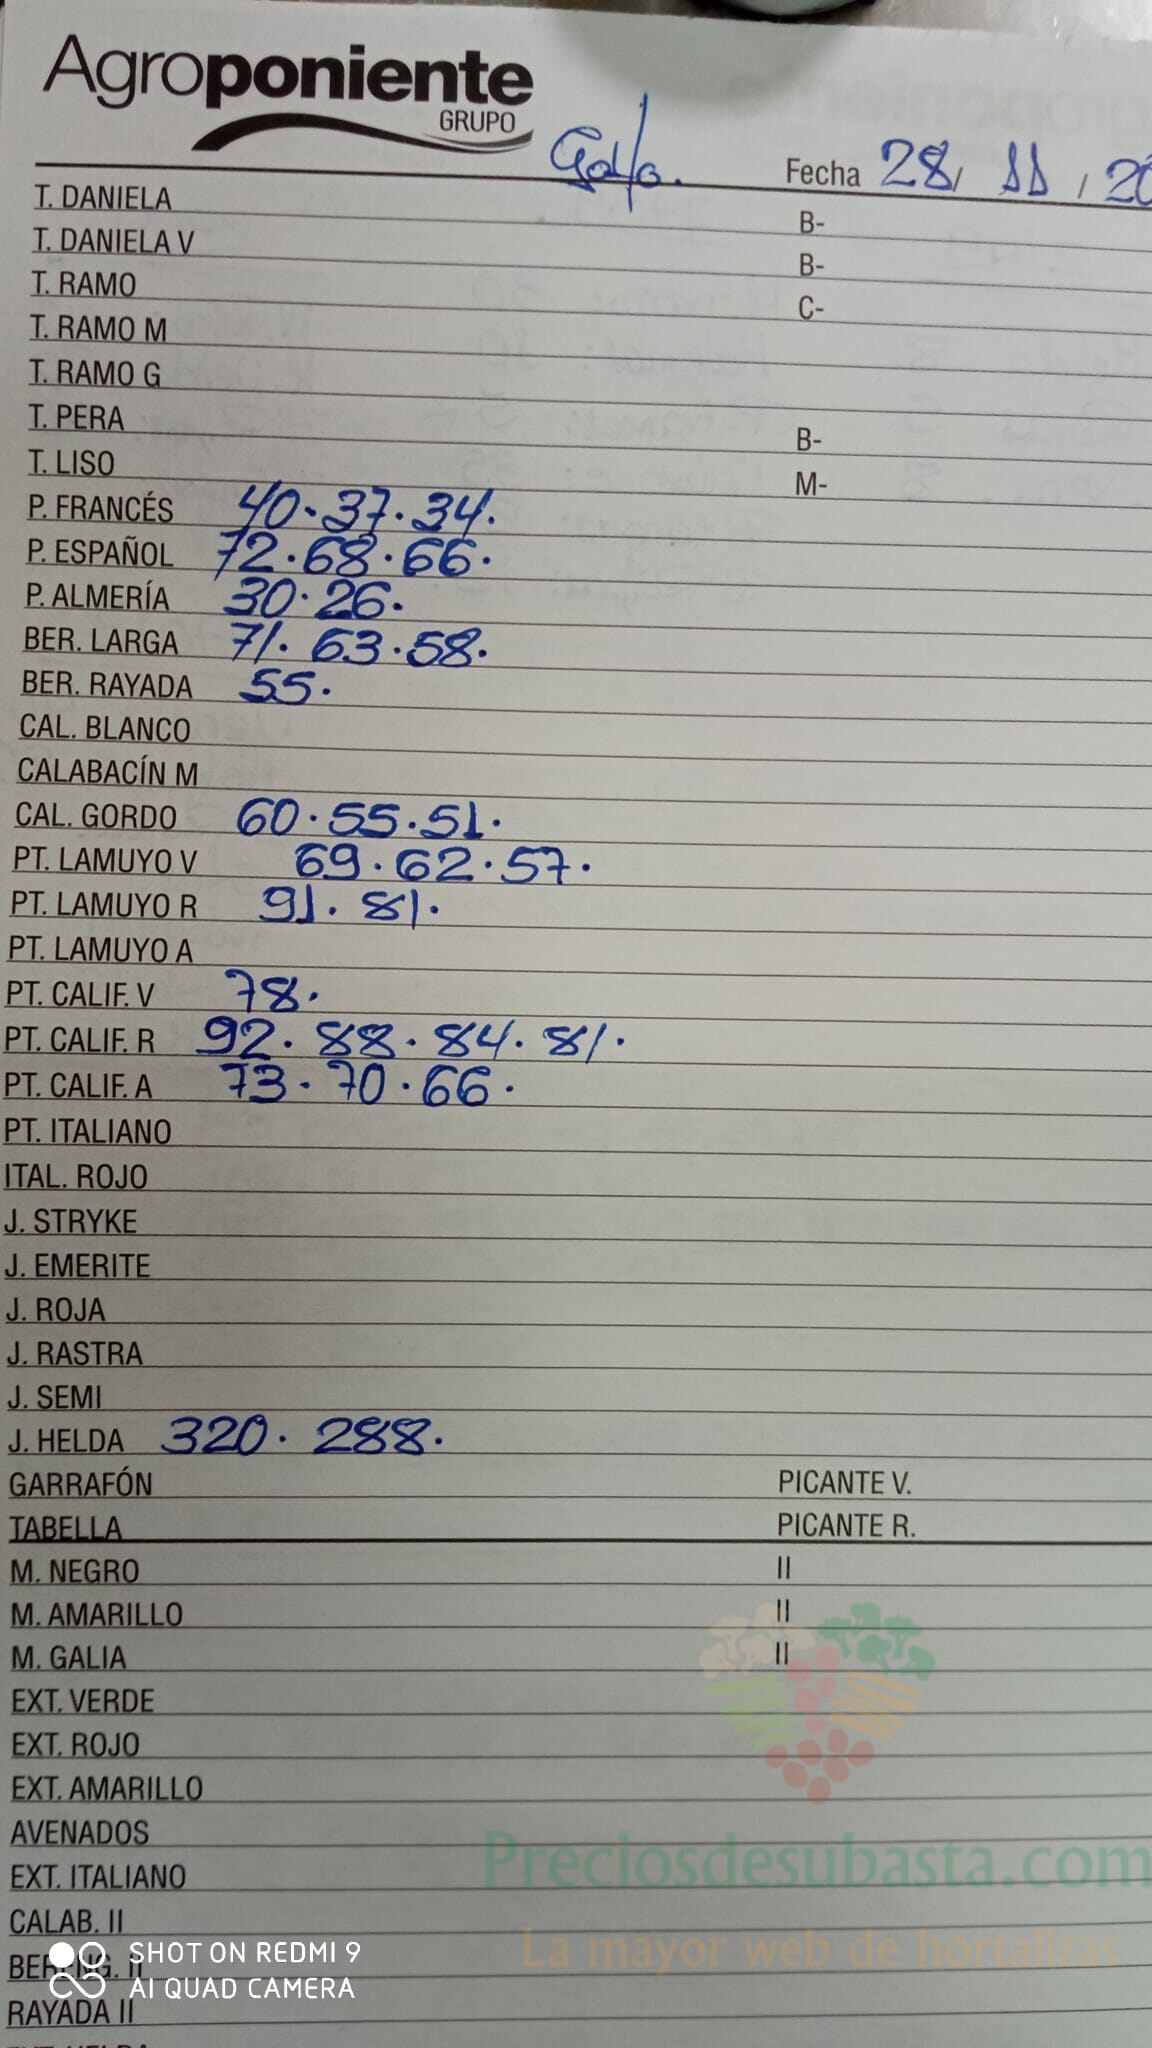 Agroponiente
GRUPO
Fecha 28/ 11 / 20
T. DANIELA B-
T. DANIELA V B-
T. RAMO C-
T. RAMO M
T. RAMO G
T. PERA B-
T. LISO M-
P. FRANCÉS 40.37.34.
P. ESPAÑOL 72.68.66.
P. ALMERÍA 30.26.
BER. LARGA 71.63.58.
BER. RAYADA 55.
CAL. BLANCO
CALABACÍN M
CAL. GORDO 60.55.51.
PT. LAMUYO V 69.62.57.
PT. LAMUYO R 91.81.
PT. LAMUYO A
PT. CALIF. V 78.
PT. CALIF. R 92.88.84.81.
PT. CALIF. A 73.70.66.
PT. ITALIANO
ITAL. ROJO
J. STRYKE
J. EMERITE
J. ROJA
J. RASTRA
J. SEMI
J. HELDA 320.288.
GARRAFÓN PICANTE V.
TABELLA PICANTE R.
M. NEGRO II
M. AMARILLO II
M. GALIA II
EXT. VERDE
EXT. ROJO
EXT. AMARILLO
AVENADOS
EXT. ITALIANO
Preciosdesubasta.com
CALAB. II
La mayor web de hortalizas
SHOT ON REDMI 9
BERENG. II
AI QUAD CAMERA
RAYADA II